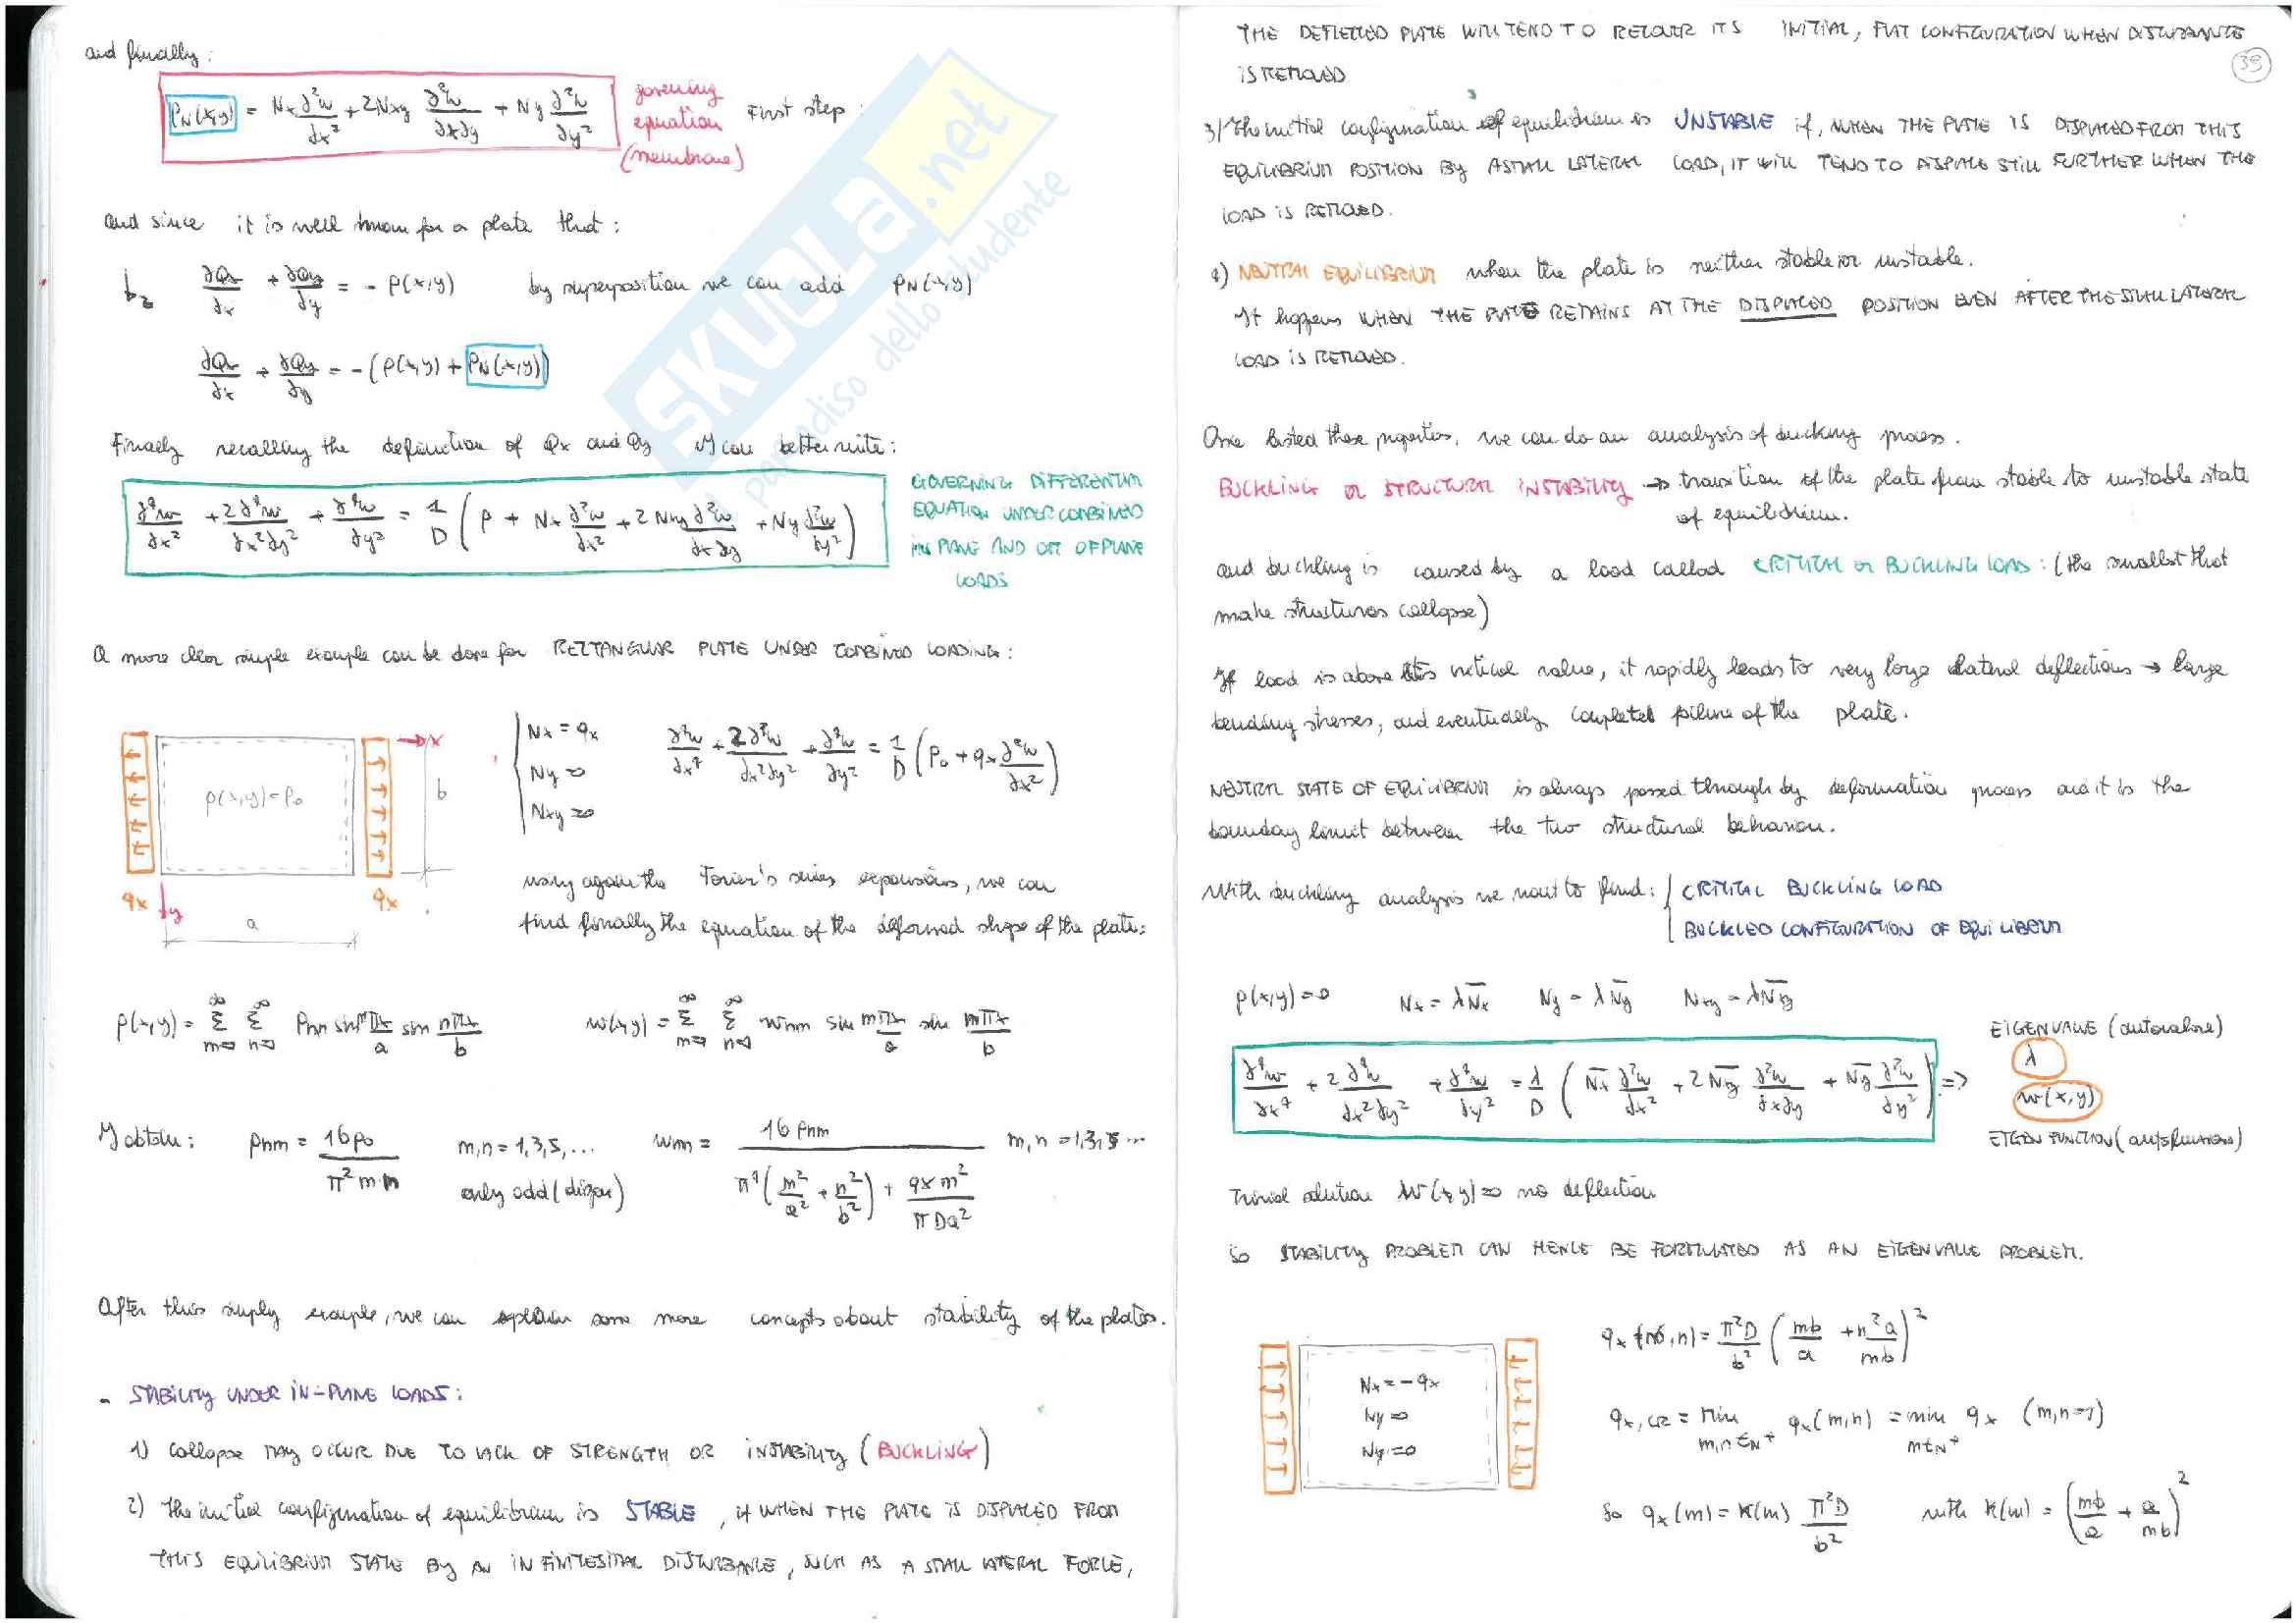 and finally:
PN(x,y) = Nx ∂²w/∂x² + 2Nxy ∂²w/∂x∂y + Ny ∂²w/∂y²
governing
equation
(membrane)
First step:
and since it is well known for a plate that:
∂Qx/∂x + ∂Qy/∂y = - P(x,y) by superposition we can add PN(x,y)
∂Qx/∂x + ∂Qy/∂y = - (P(x,y) + PN(x,y))
Finally recalling the definition of Qx and Qy I can better write:
∂⁴w/∂x² + 2∂⁴w/∂x²∂y² + ∂⁴w/∂y² = 1/D (P + Nx ∂²w/∂x² + 2Nxy ∂²w/∂x∂y + Ny ∂²w/∂y²)
GOVERNING DIFFERENTIAL
EQUATION UNDER COMBINED
IN PLANE AND OUT OF PLANE
LOADS
A more clear simple example can be done for RECTANGULAR PLATE UNDER COMBINED LOADING:
P(x,y)=P₀
x
b
qx
y
qx
a
Nx = qx
Ny = 0
Nxy = 0
∂⁴w/∂x⁴ + 2∂⁴w/∂x²∂y² + ∂⁴w/∂y² = 1/D (P₀ + qx ∂²w/∂x²)
using again the Fourier's series expansions, we can
find finally the equation of the deformed shape of the plate:
P(x,y) = Σ Σ Pmn sin mπx/a sin nπx/b
w(x,y) = Σ Σ wmn sin mπx/a sin nπx/b
I obtain: Pnm = 16P₀/π²mn m,n = 1,3,5,... only odd (dispari)
wmn = 16Pnm / (π⁴(m²/a² + n²/b²) + qx m²/πDa²) m,n = 1,3,5...
After this simply example, we can explain some more concepts about stability of the plates.
- STABILITY UNDER IN-PLANE LOADS:
1) Collapse MAY OCCUR DUE TO LACK OF STRENGTH OR INSTABILITY (BUCKLING)
2) The initial configuration of equilibrium is STABLE, if WHEN THE PLATE IS DISPLACED FROM
THIS EQUILIBRIUM STATE By AN INFINITESIMAL DISTURBANCE, SUCH AS A SMALL LATERAL FORCE,
THE DEFLECTED PLATE WILL TEND TO RECOVER ITS INITIAL, FLAT CONFIGURATION WHEN DISTURBANCE
IS REMOVED
39
3) The initial configuration of equilibrium is UNSTABLE if, WHEN THE PLATE IS DISPLACED FROM THIS
EQUILIBRIUM POSITION By A SMALL LATERAL LOAD, IT WILL TEND TO DISPLACE STILL FURTHER WHEN THE
LOAD IS REMOVED.
4) NEUTRAL EQUILIBRIUM when the plate is neither stable or unstable.
It happens WHEN THE PLATE RETAINS AT THE DISPLACED POSITION EVEN AFTER THE SMALL LATERAL
LOAD IS REMOVED.
Once listed these properties, we can do an analysis of buckling process.
BUCKLING or STRUCTURAL INSTABILITY → transition of the plate from stable to unstable state
of equilibrium.
and buckling is caused by a load called CRITICAL or BUCKLING LOAD: (the smallest that
make structures collapse)
If load is above this critical value, it rapidly leads to very large lateral deflections → large
bending stresses, and eventually complete failure of the plate.
NEUTRAL STATE OF EQUILIBRIUM is always passed through by deformation process and it is the
boundary limit between the two structural behaviour.
With buckling analysis we want to find: CRITICAL BUCKLING LOAD
BUCKLED CONFIGURATION OF EQUILIBRIUM
P(x,y)=0 Nx = λN̄x Ny = λN̄y Nxy = λN̄xy
∂⁴w/∂x⁴ + 2∂⁴w/∂x²∂y² + ∂⁴w/∂y² = λ/D (N̄x ∂²w/∂x² + 2N̄xy ∂²w/∂x∂y + N̄y ∂²w/∂y²) =>
EIGENVALUE (autovalore)
λ
w(x,y)
EIGENFUNCTION (autofunzione)
Trivial solution w(x,y)=0 no deflection
So STABILITY PROBLEM CAN HENCE BE FORMULATED AS AN EIGENVALUE PROBLEM.
Nx = -qx
Ny = 0
Nxy = 0
qx (m,n) = π²D/b² (mb/a + n²a/mb)²
qx,cr = min m,n∈N+ qx(m,n) = min m∈N+ qx (m,n=1)
So qx(m) = K(m) π²D/b² with K(m) = (mb/a + a/mb)²
SKUOLA.net
il paradiso dello studente